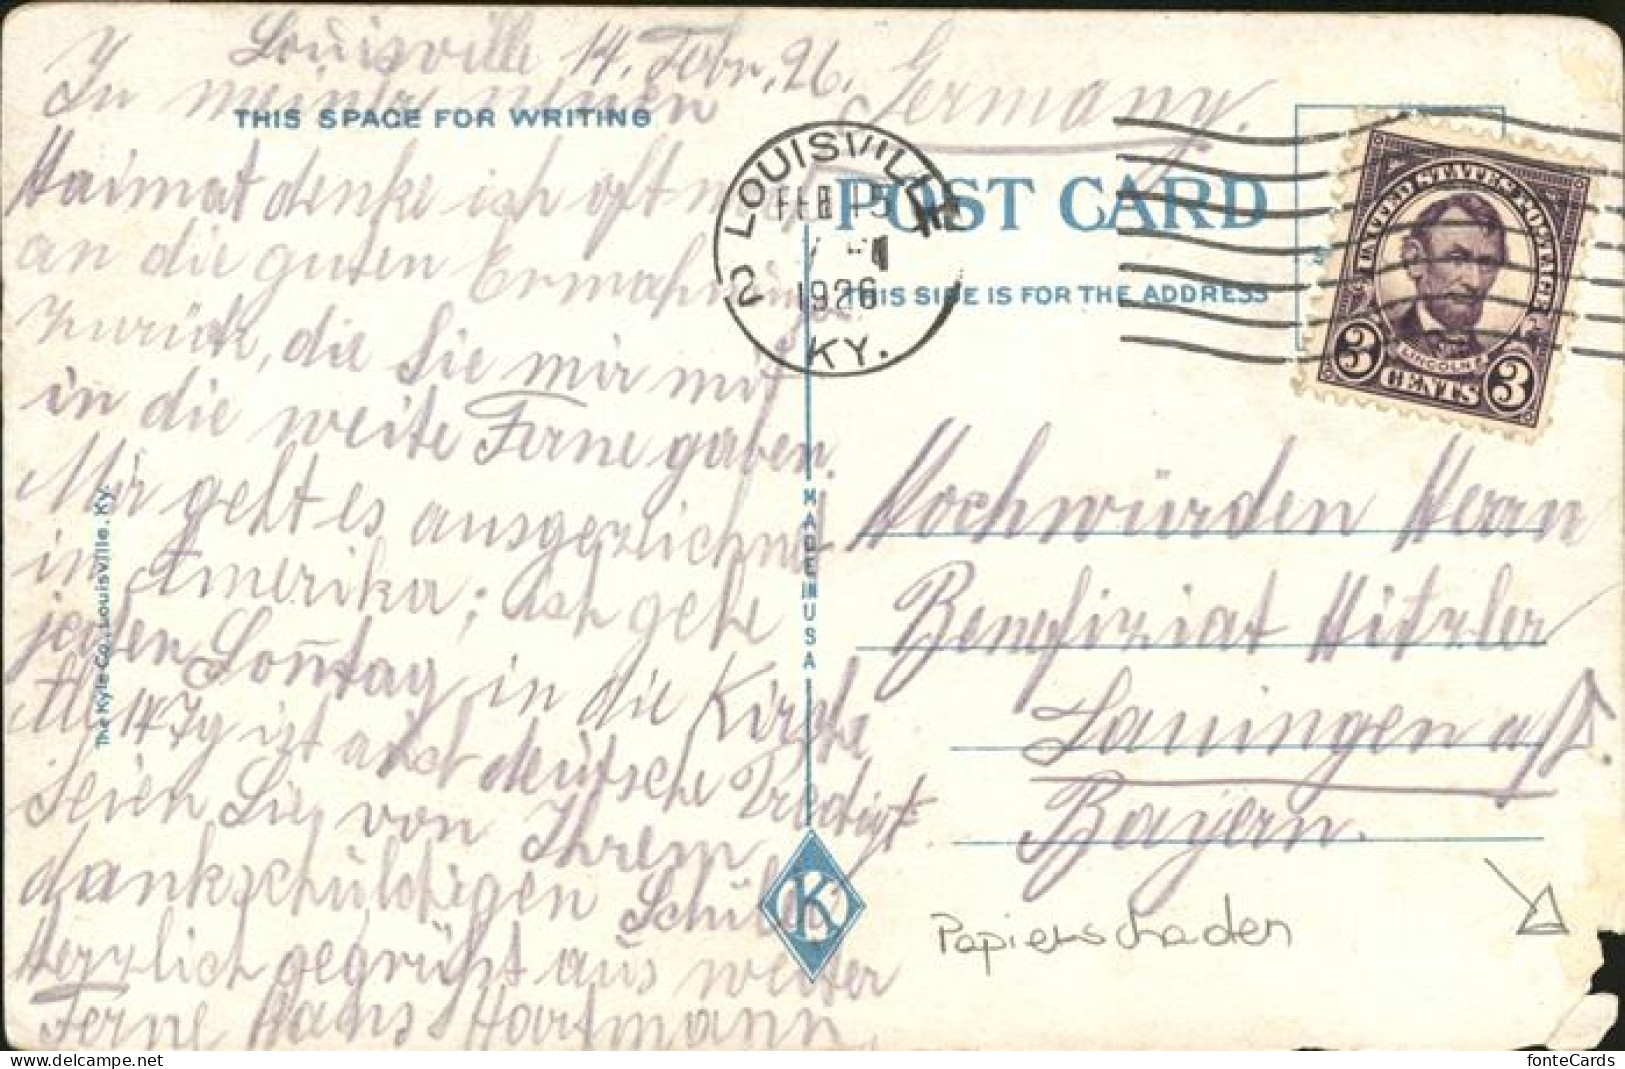 Louisville 14. Febr. 26.
In meiner neuen
THIS SPACE FOR WRITING
Haimat denke ich oft
an die guten Ermahnungen
zurück, die Sie mir mit
in die weite Ferne gaben.
Mir geht es ausgezlichnet
in Amerika; ich gehe
jeden Sontag in die Kirche
ist auch deutsche Predigt.
Seien Sie von Ihrem
dankschuldigen Schüler
Herzlich gegrüßt aus weiter
Ferne Hans Hartmann
The Kyle Co., Louisville, Ky.
MADE IN USA
K
Germany.
POST CARD
THIS SIDE IS FOR THE ADDRESS
LOUISVILLE
FEB 15
1926
2
KY.
UNITED STATES POSTAGE
LINCOLN
3 CENTS 3
Hochwürden Herrn
Benefiziat Hitzler
Lauingen a/D.
Bayern.
Papierschaden
fonteCards